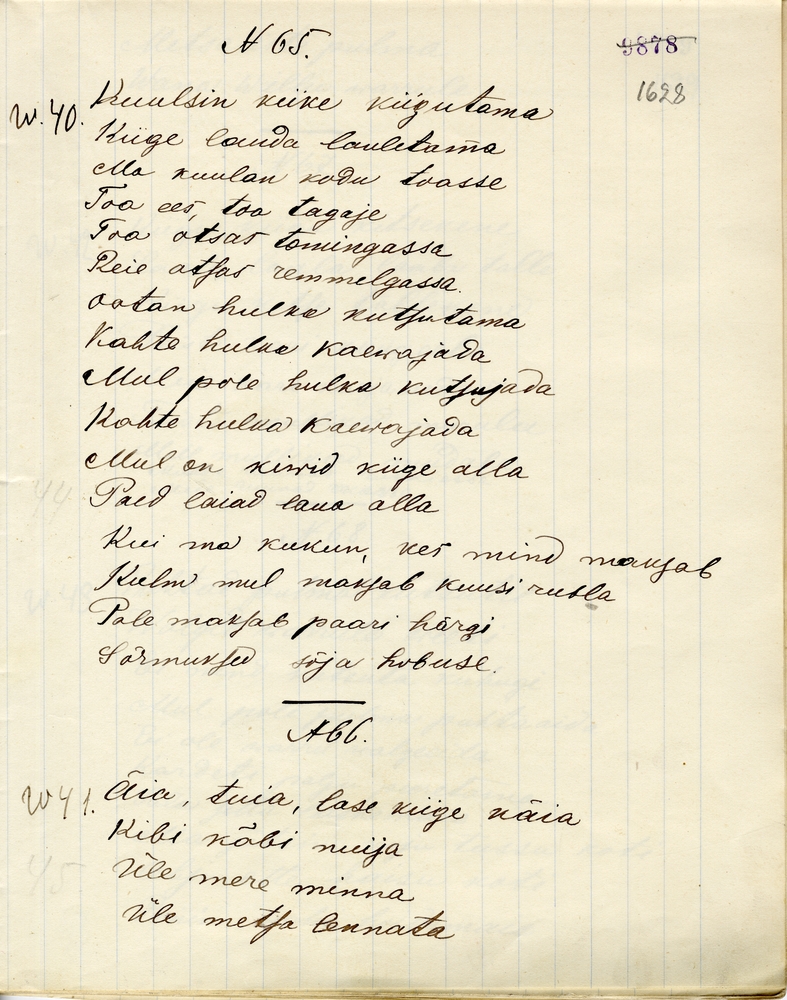 N 65.
9878
1628
W. 40.
Kuulsin kiike kiigutama
Kiige lauda lauletama
Ma kuulan kodu toasse
Toa ees, toa tagaje
Toa otsas tomingassa
Reie otsas remmelgassa.
ootan hulka kutsutama
Kahte hulka kaewajada
Mul pole hulka kutsujada
Kahte hulka kaewajada
Mul on kiwid kiige alla
Paed laiad laua alla
Kui ma kukun, kes mind maksab
Kulm mul maksab kuusi rubla
Pale maksab paari härgi
Sõrmuksed sõja hobuse.
N 66.
W 41.
Äia, tuia, lase kiige käia
Kibi käbi nuija
Üle mere minna
Üle metsa lennata